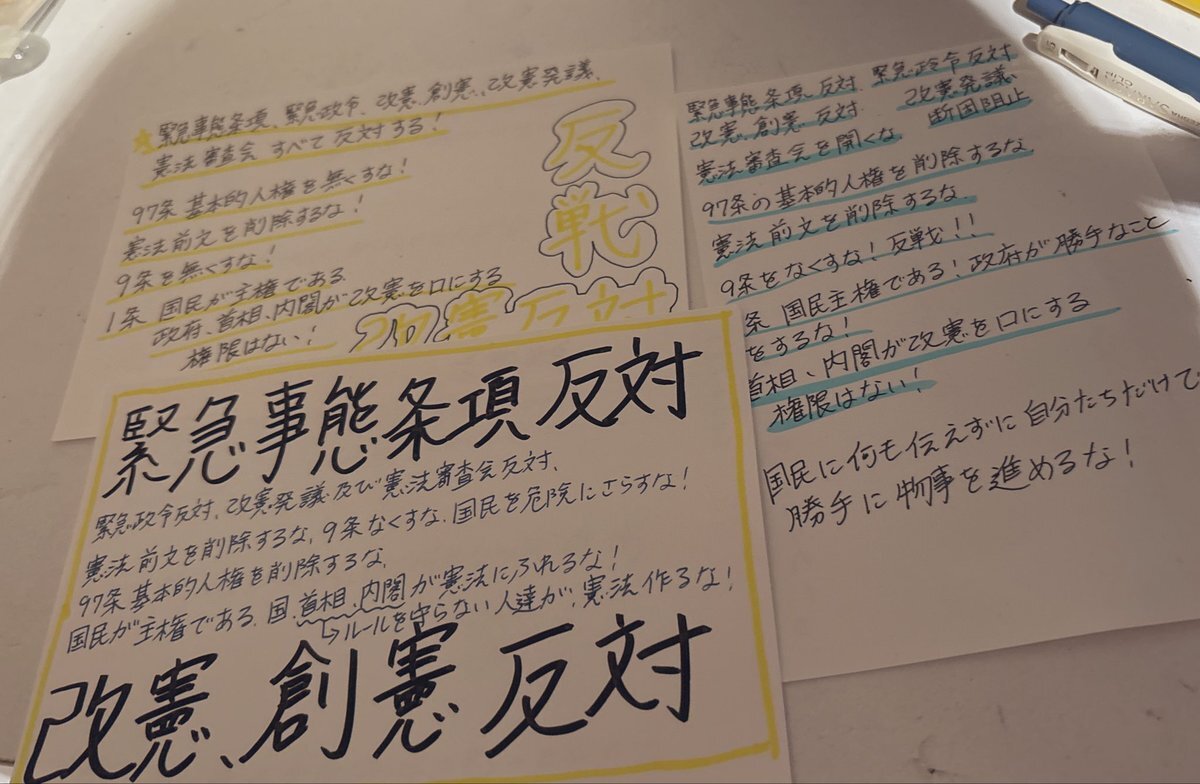 ★緊急事態条項、緊急政令、改憲、創憲、改憲発議、
憲法審査会 すべて反対する！
97条 基本的人権を無くすな！
憲法前文を削除するな！
9条を無くすな！
1条 国民が主権である
政府、首相、内閣が改憲を口にする
権限はない！
反戦
改憲反対
緊急事態条項反対 緊急政令反対
改憲、創憲 反対 改憲発議
断固阻止
憲法審査会を開くな
97条の基本的人権を削除するな
憲法前文を削除するな
9条をなくすな！反戦！！
条 国民主権である！政府が勝手なこと
をするな！
首相、内閣が改憲を口にする
権限はない！
国民に何も伝えずに自分たちだけで
勝手に物事を進めるな！
緊急事態条項反対
緊急政令反対、改憲発議及び憲法審査会反対、
憲法前文を削除するな、9条なくすな、国民を危険にさらすな！
97条基本的人権を削除するな、
国民が主権である、国、首相、内閣が憲法にふれるな！
↳ルールを守らない人達が、憲法作るな！
改憲、創憲反対